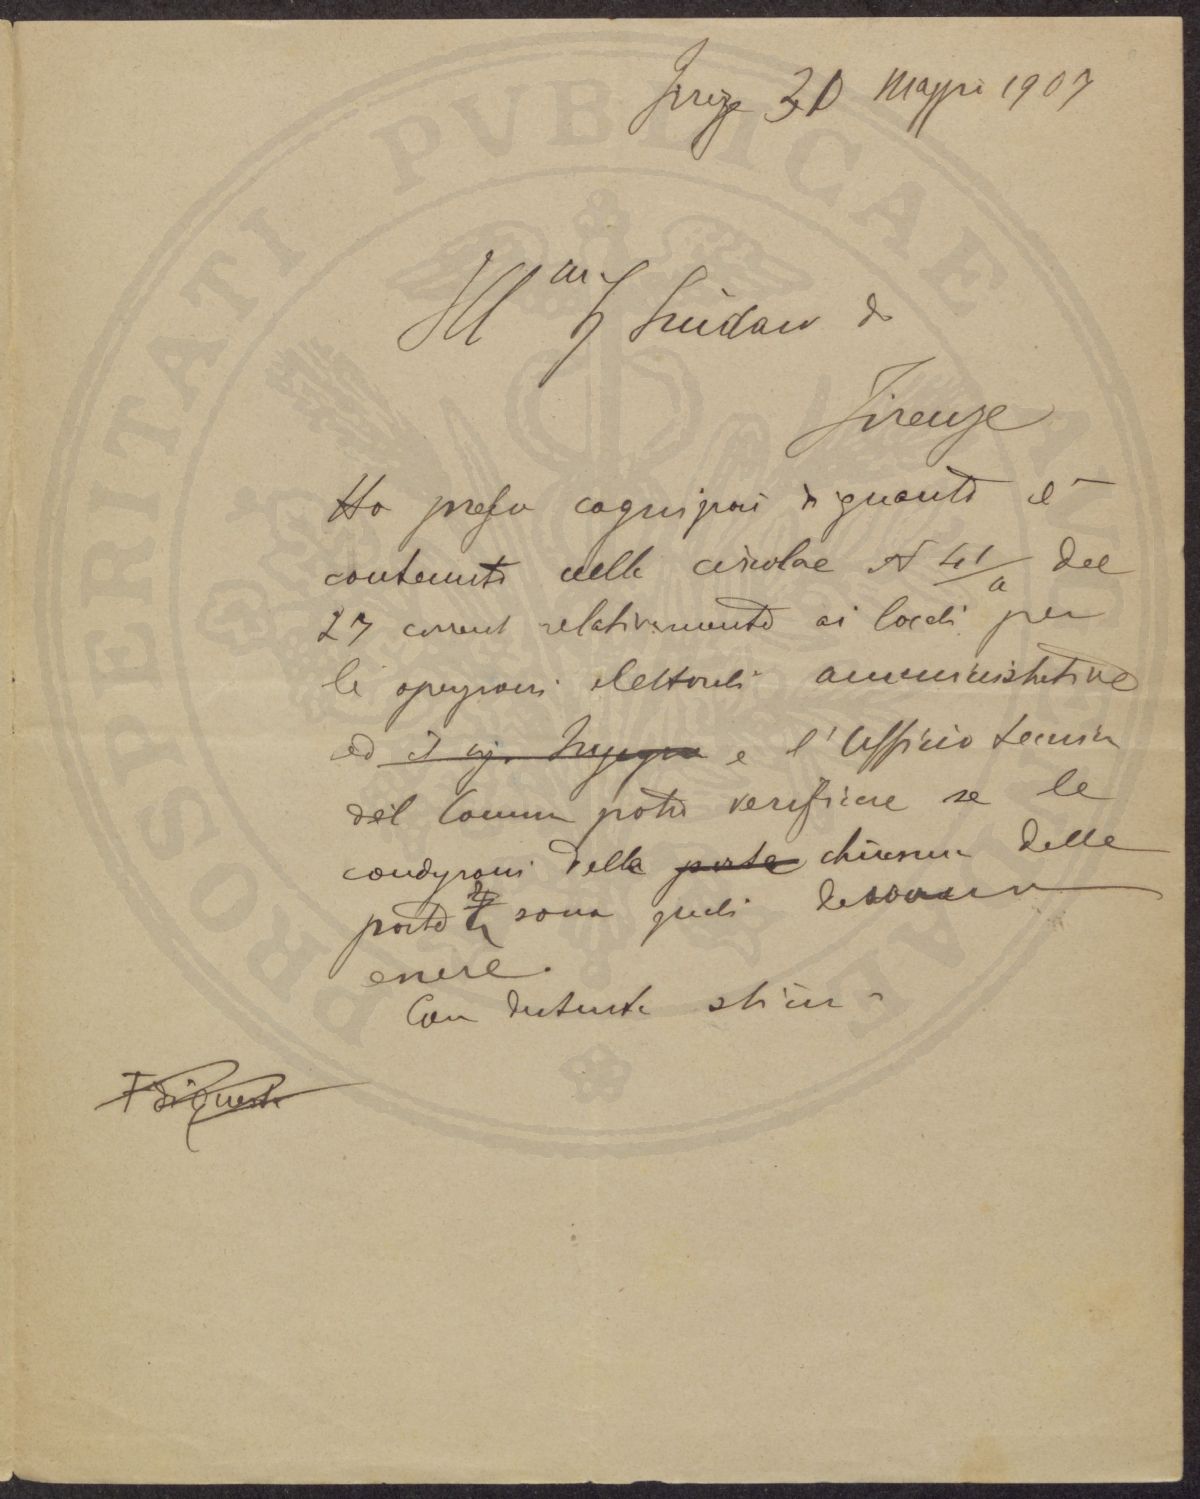 Firenze 30 Maggio 1907
Ill.mo Sig. Sindaco di
Firenze
Ho preso cognizione di quanto è
contenuto nella circolare N 41/a del
27 corrent relativamente ai locali per
le operazioni elettorali amministrative
ed e l'Ufficio tecnico
del Comune potrà verificare se le
condizioni della porta chiusura delle
porte sono quali devono
essere.
Con distinta stima
PROSPERITATI PVBLICAE